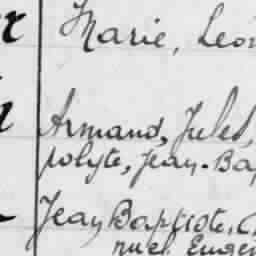 Marie, Léon
Armand, Jules,
polyte, Jean-Bap
Jean Baptiste, C
nuel Eugen